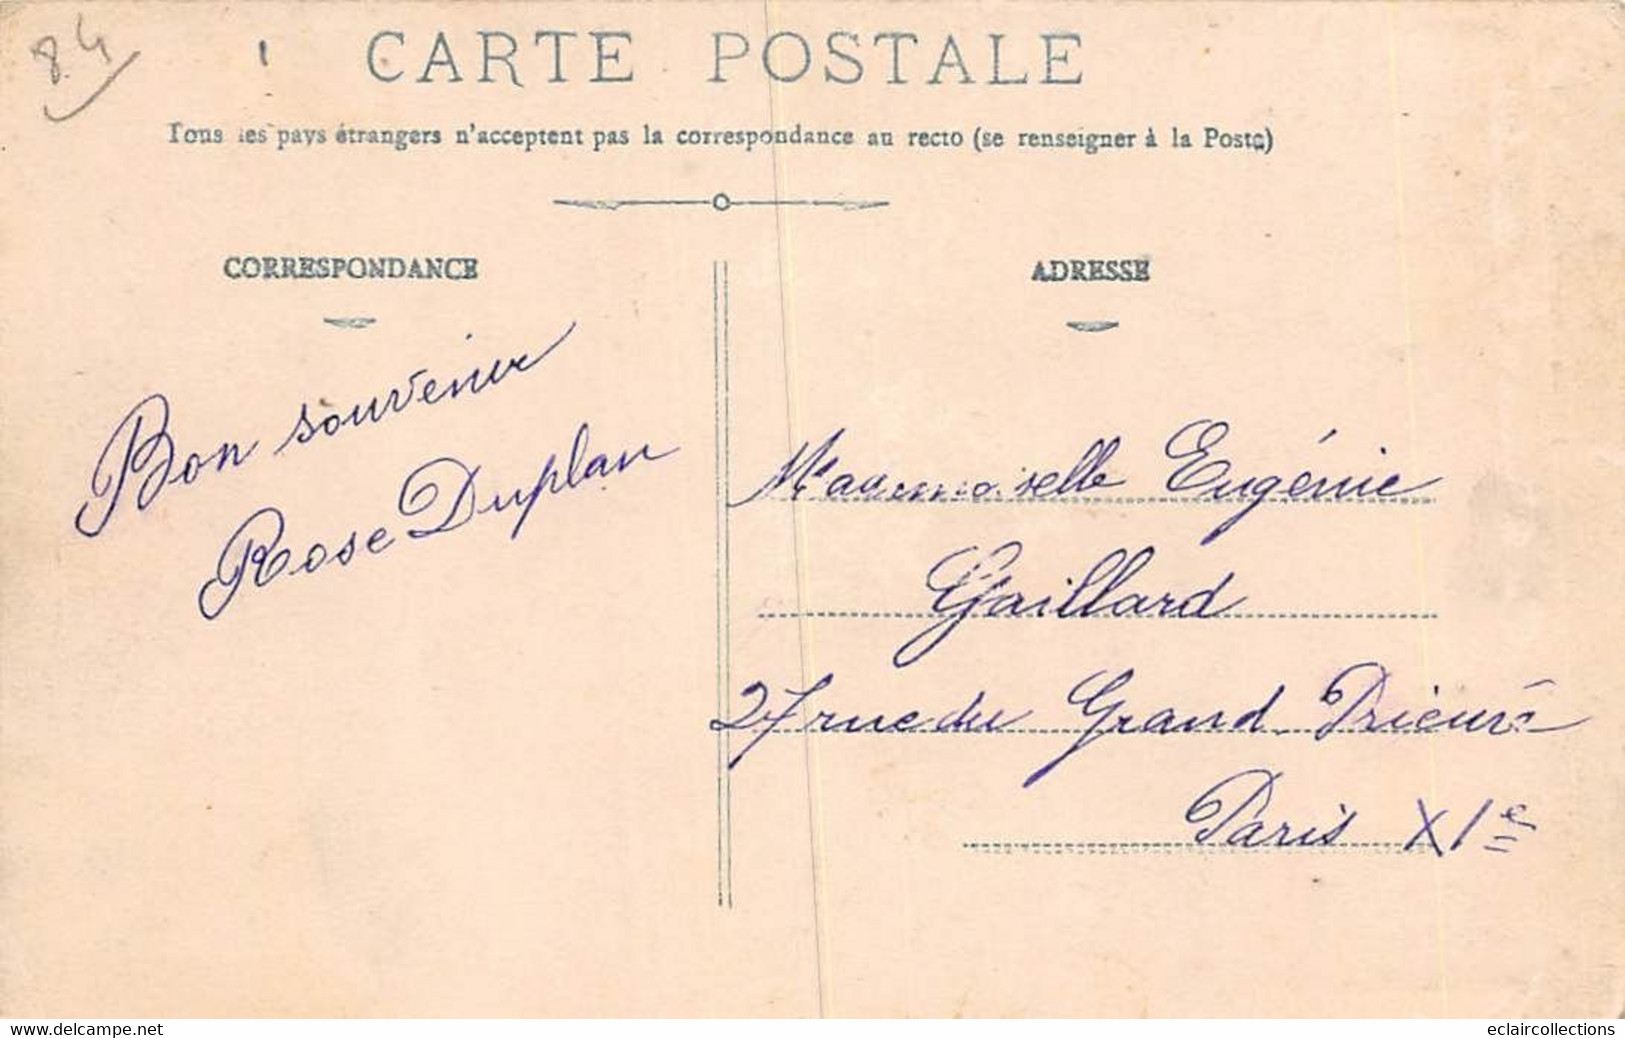 84
CARTE POSTALE
Tous les pays étrangers n'acceptent pas la correspondance au recto (se renseigner à la Poste)
CORRESPONDANCE
Bon souvenir
Rose Duplan
ADRESSE
Mademoiselle Eugénie
Gaillard
27 rue du Grand Prieuré
Paris XIe
www.delcampe.net
eclaircollections